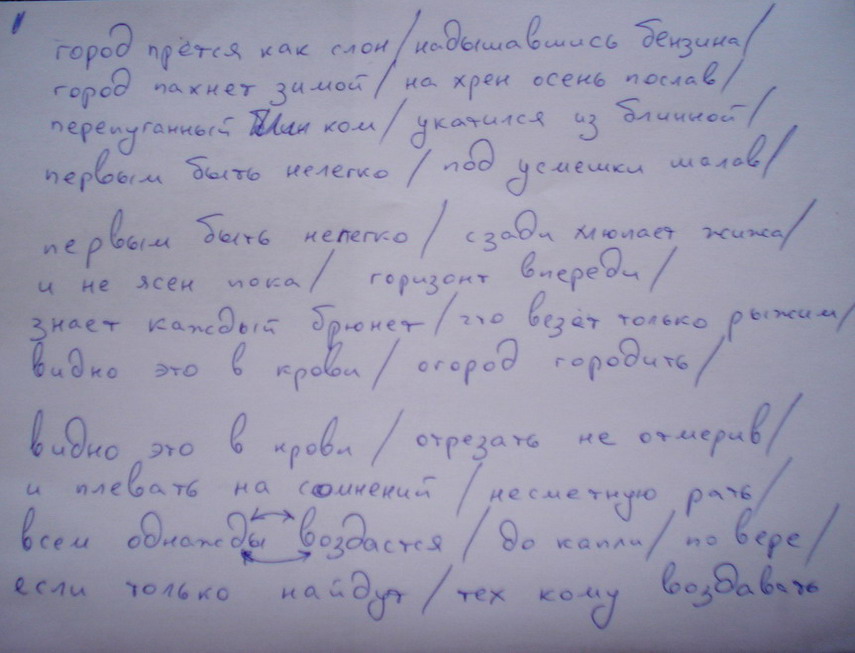 город прётся как слон/надышавшись бензина/
город пахнет зимой/на хрен осень послав/
перепуганный блин ком/укатился из блинной/
первым быть нелегко/под усмешки шалав/
первым быть нелегко/сзади хлюпает жижа/
и не ясен пока/горизонт впереди/
знает каждый брюнет/что везёт только рыжим/
видно это в крови/огород городить/
видно это в крови/отрезать не отмерив/
и плевать на сомнений/несметную рать/
всем однажды воздастся/до капли/по вере/
если только найдут/тех кому воздавать